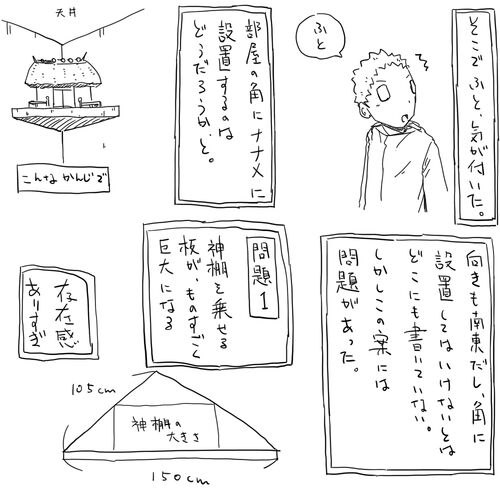 そこでふと、気が付いた。
ふと
部屋の角にナナメに
設置するのは
どうだろうか、と。
天井
こんなかんじで
向きも南東だし、角に
設置してはいけないとは
どこにも書いていない。
しかしこの案には
問題があった。
問題1
神棚を乗せる
板が、ものすごく
巨大になる
存在感
ありすぎ
105cm
神棚の
大きさ
150cm